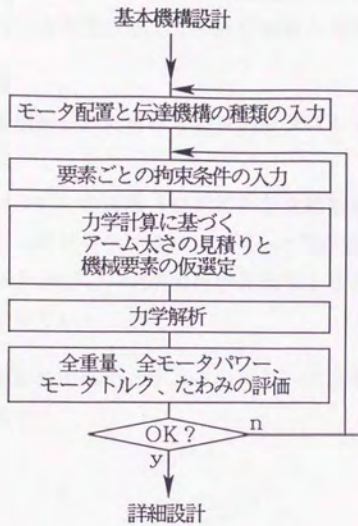 基本機構設計
モータ配置と伝達機構の種類の入力
要素ごとの拘束条件の入力
力学計算に基づく
アーム太さの見積りと
機械要素の仮選定
力学解析
全重量、全モータパワー、
モータトルク、たわみの評価
OK？
n
y
詳細設計